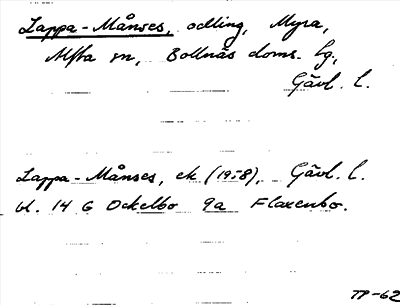 Lappa-Månses, odling, Myra,
Alfta sn, Bollnäs doms. hg.,
Gävl. l.
Lappa-Månses, ek (1958), Gävl. l.
bl. 14 G Ockelbo 9a Flaxenbo.
TP-62